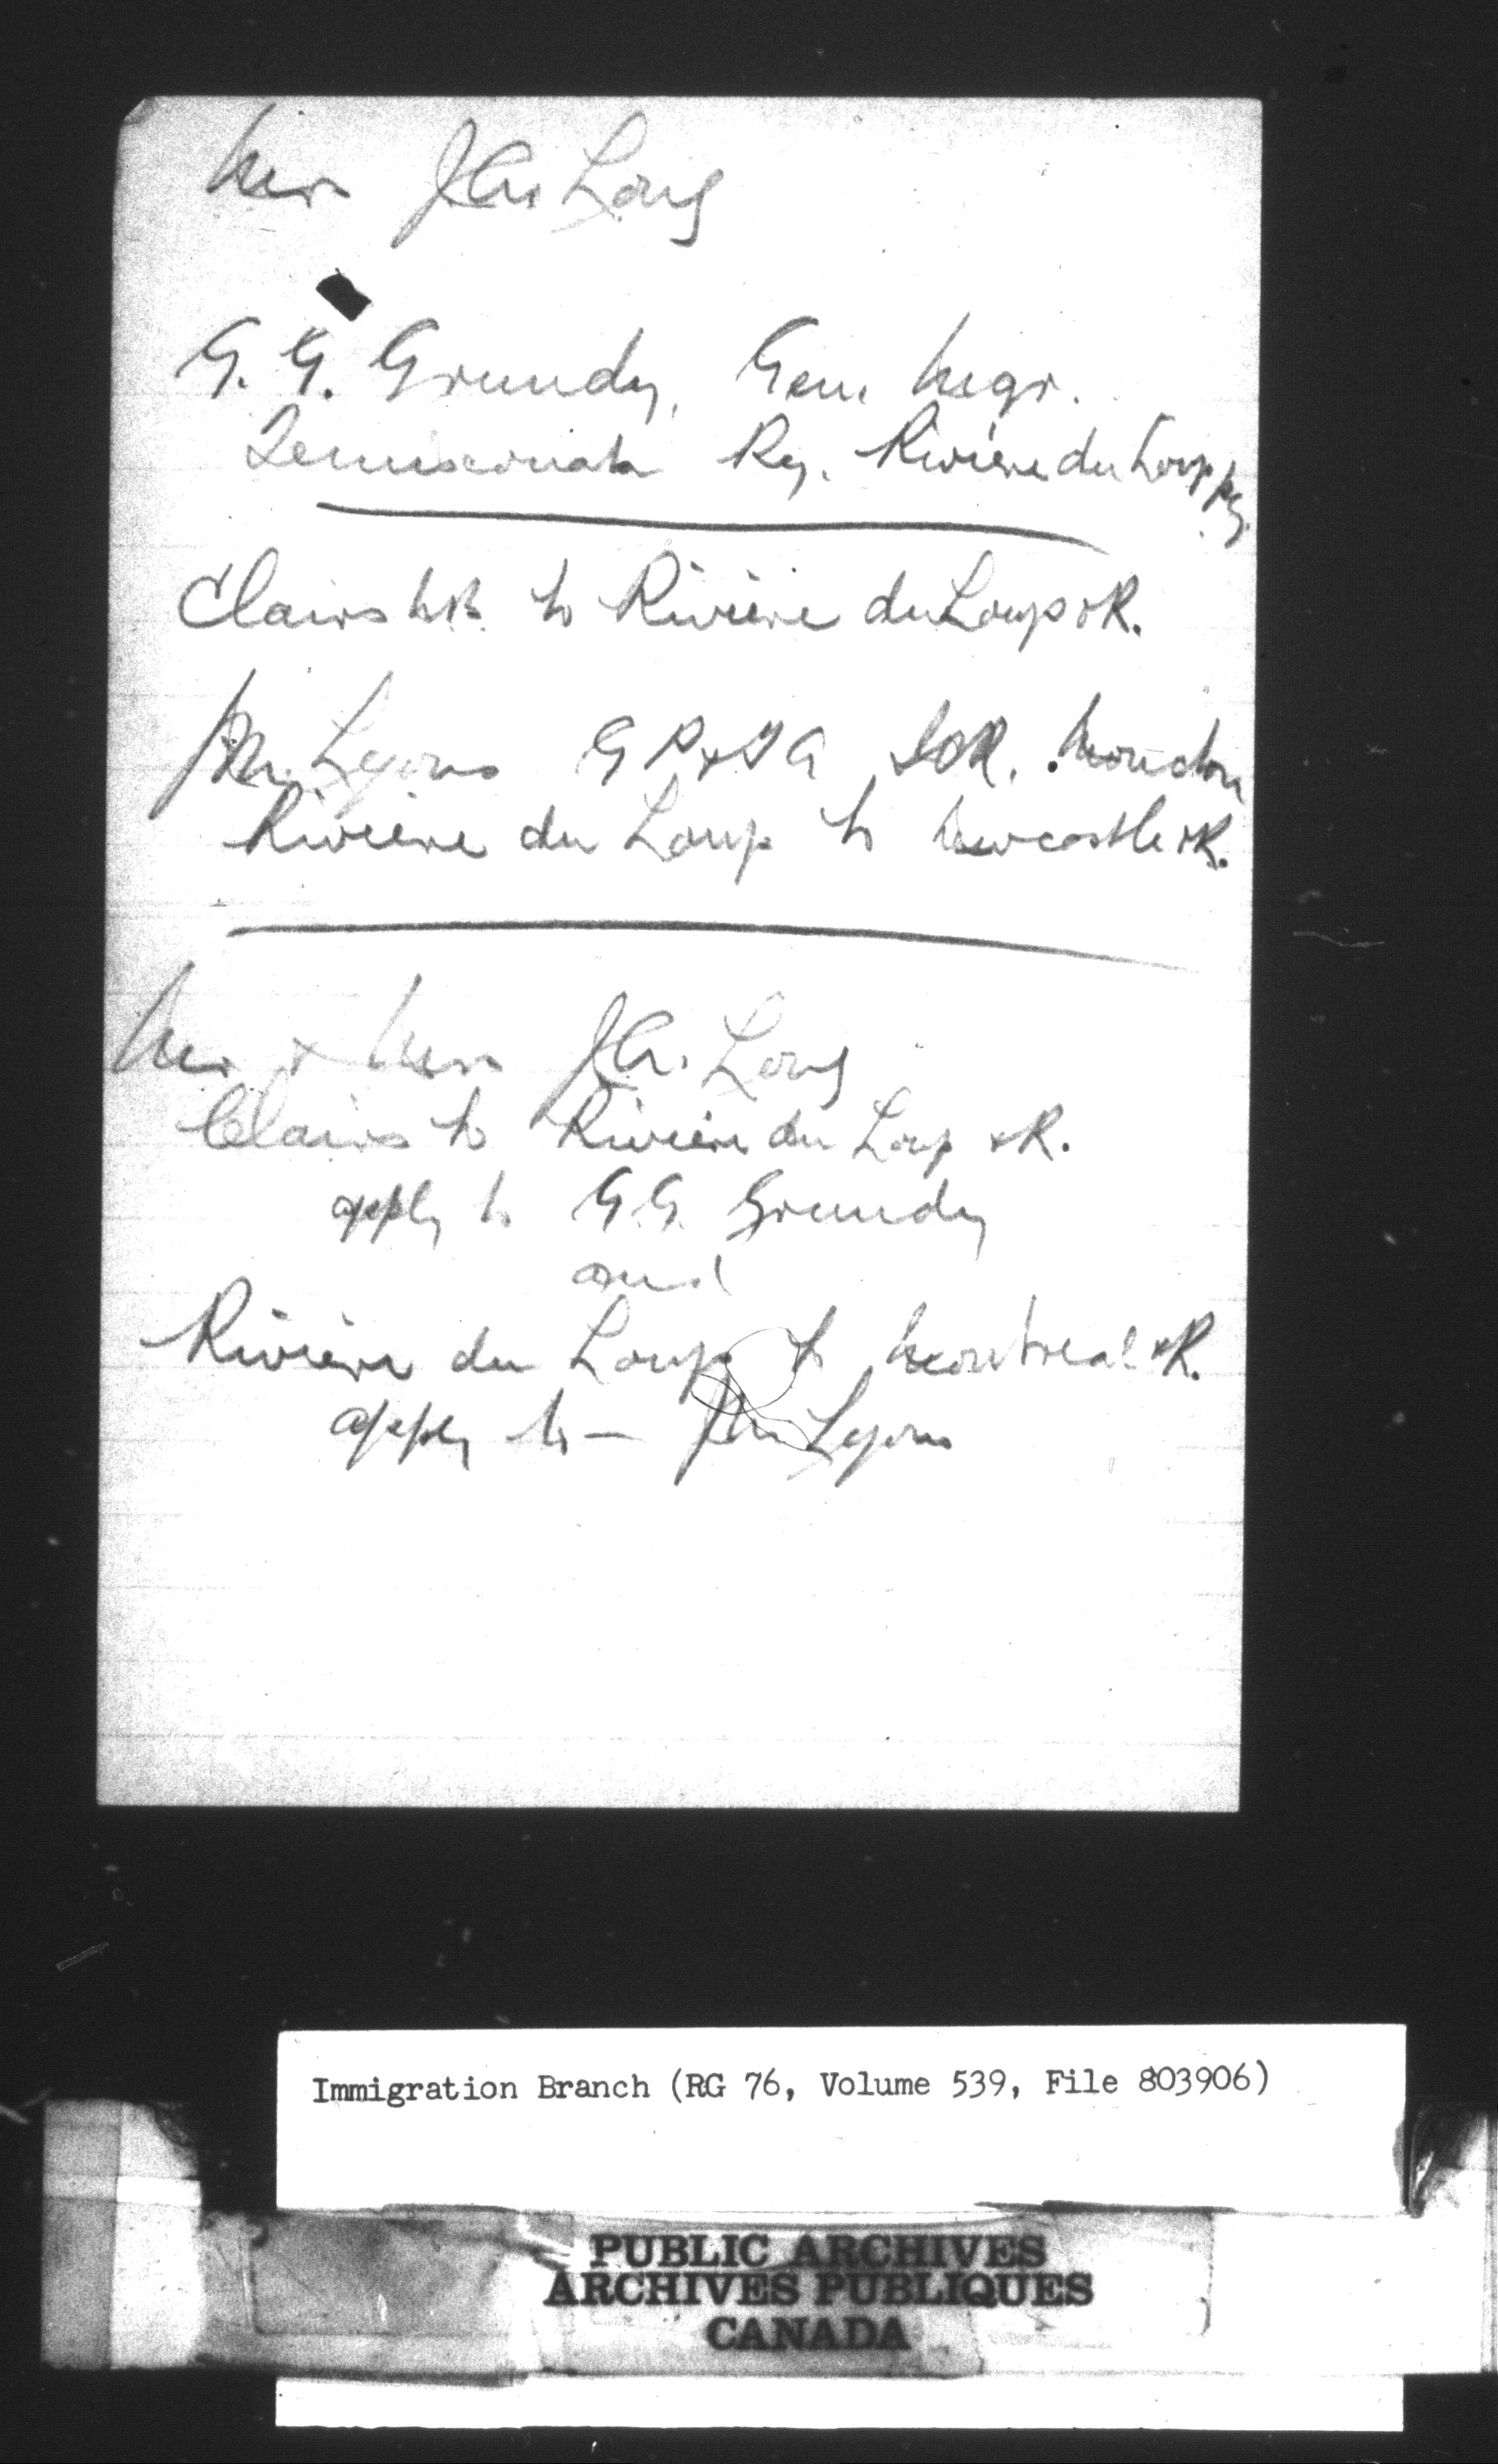 Mrs J.W. Long
G. G. Grundy, Gen. Mgr.
Temiscouata Ry. Riviere du Loup PQ.
Clairs N.B. to Riviere du Loup & R.
Jno. Lyons G P & T A ICR. Moncton
Riviere du Loup to Newcastle & R.
Mr. & Mrs J.W. Long
Clairs to Riviere du Loup & R.
apply to G.G. Grundy
and
Riviere du Loup to Montreal & R.
apply to — Jno Lyons
Immigration Branch (RG 76, Volume 539, File 803906)
PUBLIC ARCHIVES
ARCHIVES PUBLIQUES
CANADA